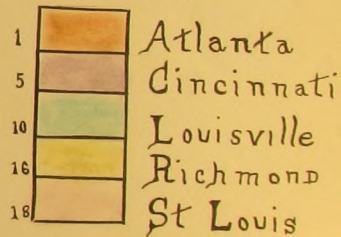 1 Atlanta
5 Cincinnati
10 Louisville
16 Richmond
18 St Louis